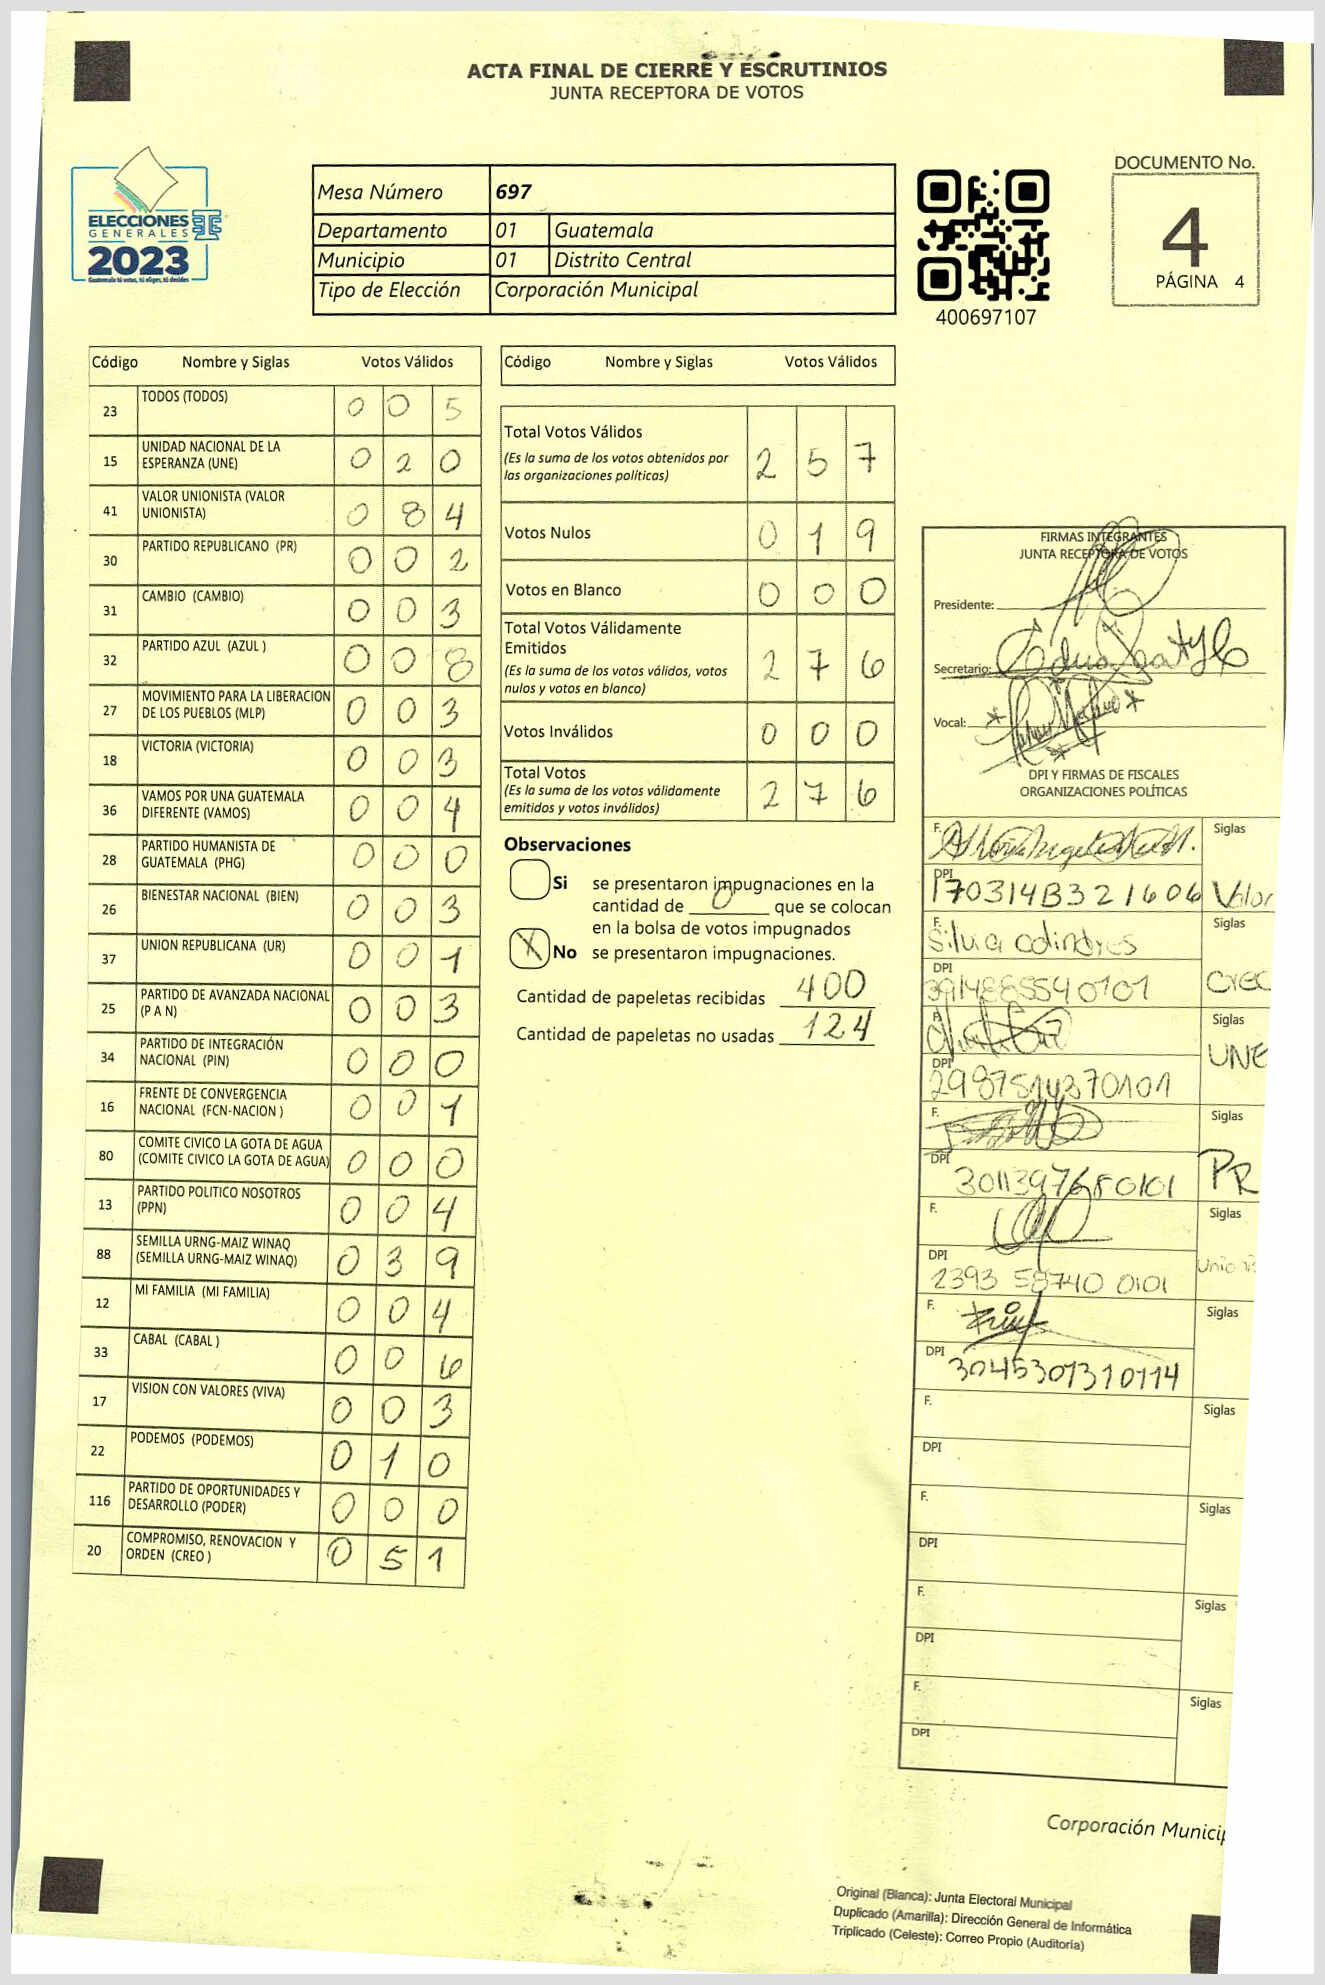 ACTA FINAL DE CIERRE Y ESCRUTINIOS
JUNTA RECEPTORA DE VOTOS
ELECCIONES
GENERALES
2023
Guatemala tú votas, tú eliges, tú decides
Mesa Número 697
Departamento 01 Guatemala
Municipio 01 Distrito Central
Tipo de Elección Corporación Municipal
400697107
DOCUMENTO No.
4
PÁGINA 4
Código Nombre y Siglas Votos Válidos
23 TODOS (TODOS) 0 0 5
15 UNIDAD NACIONAL DE LA
ESPERANZA (UNE) 0 2 0
41 VALOR UNIONISTA (VALOR
UNIONISTA) 0 8 4
30 PARTIDO REPUBLICANO (PR) 0 0 2
31 CAMBIO (CAMBIO) 0 0 3
32 PARTIDO AZUL (AZUL ) 0 0 8
27 MOVIMIENTO PARA LA LIBERACION
DE LOS PUEBLOS (MLP) 0 0 3
18 VICTORIA (VICTORIA) 0 0 3
36 VAMOS POR UNA GUATEMALA
DIFERENTE (VAMOS) 0 0 4
28 PARTIDO HUMANISTA DE
GUATEMALA (PHG) 0 0 0
26 BIENESTAR NACIONAL (BIEN) 0 0 3
37 UNION REPUBLICANA (UR) 0 0 1
25 PARTIDO DE AVANZADA NACIONAL
(P A N) 0 0 3
34 PARTIDO DE INTEGRACIÓN
NACIONAL (PIN) 0 0 0
16 FRENTE DE CONVERGENCIA
NACIONAL (FCN-NACION ) 0 0 1
80 COMITE CIVICO LA GOTA DE AGUA
(COMITE CIVICO LA GOTA DE AGUA) 0 0 0
13 PARTIDO POLITICO NOSOTROS
(PPN) 0 0 4
88 SEMILLA URNG-MAIZ WINAQ
(SEMILLA URNG-MAIZ WINAQ) 0 3 9
12 MI FAMILIA (MI FAMILIA) 0 0 4
33 CABAL (CABAL ) 0 0 6
17 VISION CON VALORES (VIVA) 0 0 3
22 PODEMOS (PODEMOS) 0 1 0
116 PARTIDO DE OPORTUNIDADES Y
DESARROLLO (PODER) 0 0 0
20 COMPROMISO, RENOVACION Y
ORDEN (CREO ) 0 5 1
Código Nombre y Siglas Votos Válidos
Total Votos Válidos
(Es la suma de los votos obtenidos por
las organizaciones políticas) 2 5 7
Votos Nulos 0 1 9
Votos en Blanco 0 0 0
Total Votos Válidamente
Emitidos
(Es la suma de los votos válidos, votos
nulos y votos en blanco) 2 7 6
Votos Inválidos 0 0 0
Total Votos
(Es la suma de los votos válidamente
emitidos y votos inválidos) 2 7 6
Observaciones
Si se presentaron impugnaciones en la
cantidad de 0 que se colocan
en la bolsa de votos impugnados
X No se presentaron impugnaciones.
Cantidad de papeletas recibidas 400
Cantidad de papeletas no usadas 124
FIRMAS INTEGRANTES
JUNTA RECEPTORA DE VOTOS
Presidente:
Secretario:
Vocal:
DPI Y FIRMAS DE FISCALES
ORGANIZACIONES POLÍTICAS
F. Siglas
DPI 170314B321606 Valor
F. Silvia Colindres Siglas
DPI 3914885540101 Creo
F. Siglas
DPI 2987514370101 UNE
F. Siglas
DPI 3011397680101 PR
F. Siglas
DPI 2393 58740 0101 Unio
F. Siglas
DPI 3045301310114
F. Siglas
DPI
F. Siglas
DPI
F. Siglas
DPI
F. Siglas
DPI
Corporación Municip
Original (Blanca): Junta Electoral Municipal
Duplicado (Amarilla): Dirección General de Informática
Triplicado (Celeste): Correo Propio (Auditoría)